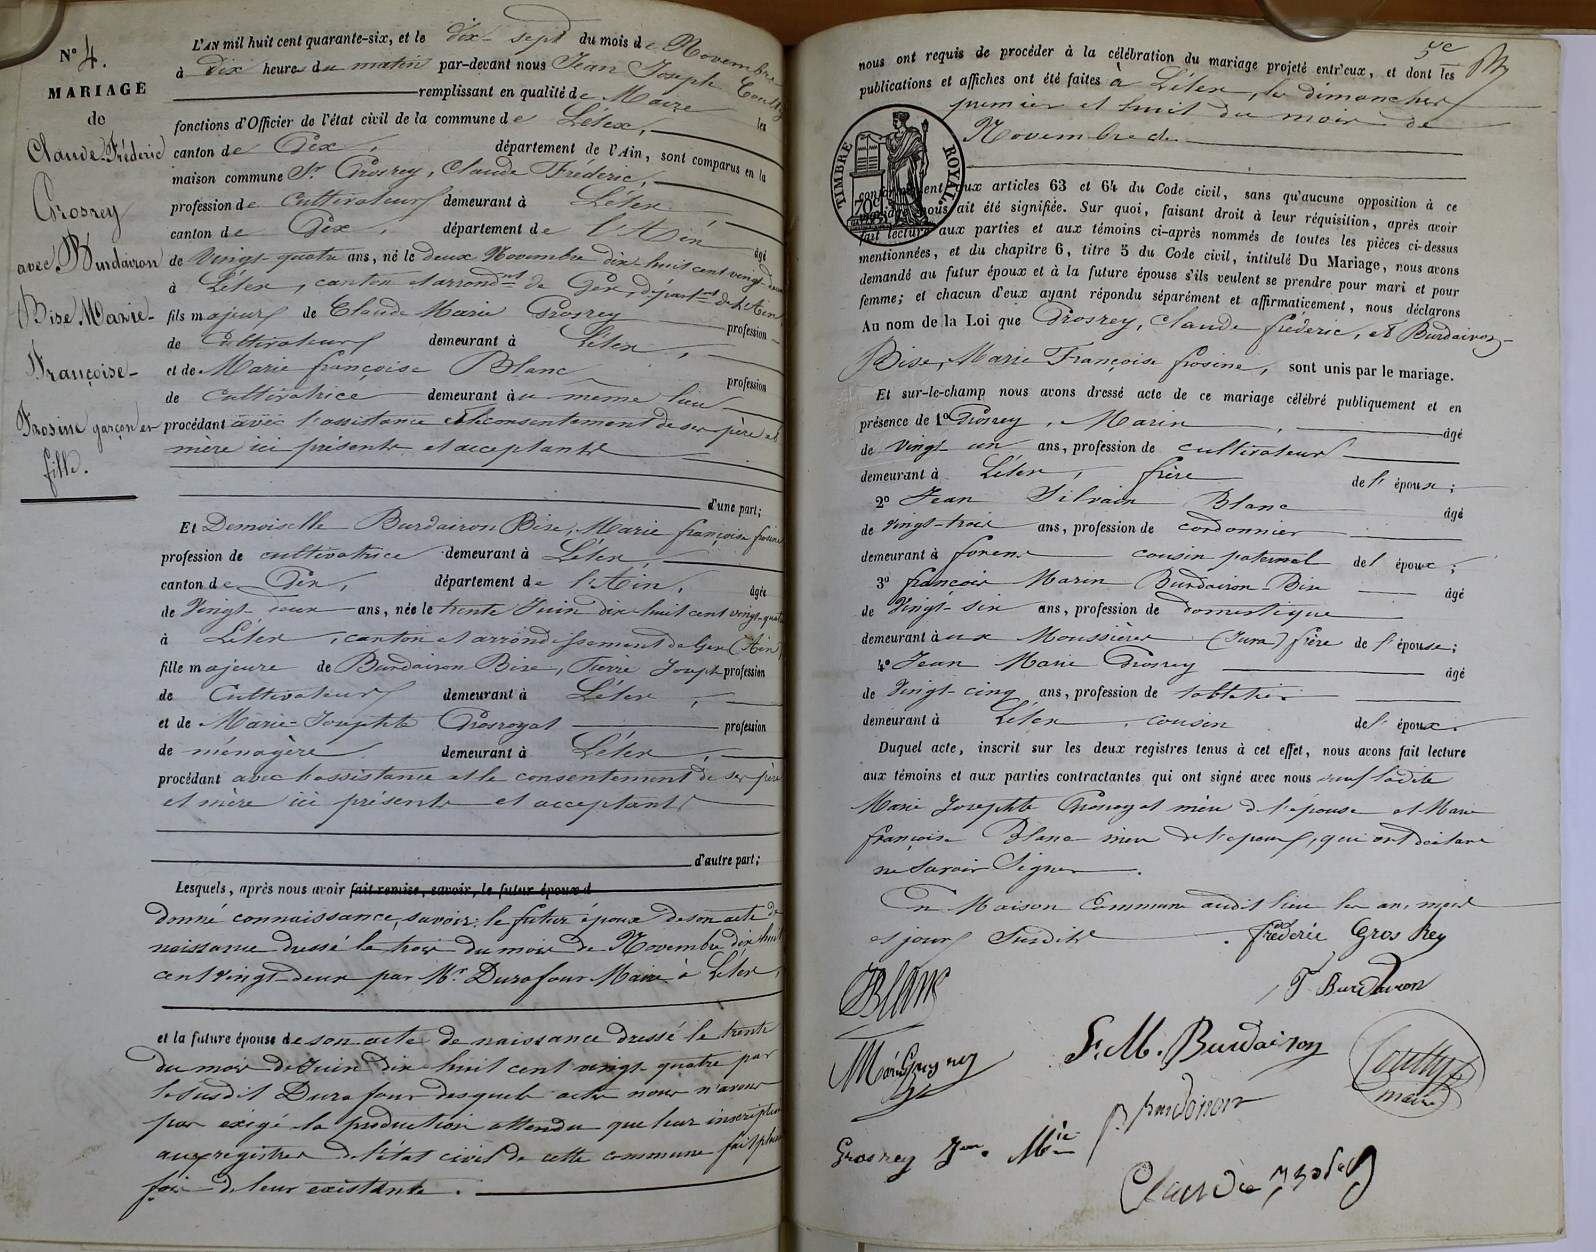 N° 4.
MARIAGE
de
Claude Fréderic
Grosrey
avec Burdairon
Bise Marie-
Françoise-
Frosine garçon et
fille.
L'AN mil huit cent quarante-six, et le dix-sept du mois de Novembre
à dix heures du matin par-devant nous Jean Joseph
remplissant en qualité de Maire les
fonctions d'Officier de l'état civil de la commune de Lélex,
canton de Gex, département de l'Ain, sont comparus en la
maison commune Sr Grosrey, Claude Fréderic,
profession de cultivateur demeurant à Lélex
canton de Gex, département de l'Ain âgé
de vingt quatre ans, né le deux Novembre dix huit cent vingt deux
à Lélex, canton et arrondnt de Gex, départnt de l'Ain
fils majeur de Claude Marie Grosrey profession
de cultivateur demeurant à Lélex,
et de Marie françoise Blanc profession
de cultivatrice demeurant au meme lieu
procédant avec l'assistance et le consentement de ses père et
mère ici présents et acceptants
d'une part;
Et Demoiselle Burdairon Bise, Marie françoise frosine
profession de cultivatrice demeurant à Lélex,
canton de Gex, département de l'Ain, âgée
de vingt-deux ans, née le trente Juin dix huit cent vingt-quatre
à Lélex, canton et arrondissement de Gex (Ain)
fille majeure de Burdairon Bise, Pierre Joseph profession
de cultivateur demeurant à Lélex,
et de Marie Josephte Grosroyat profession
de ménagère demeurant à Lélex,
procédant avec l'assistance et le consentement de ses père
et mère ici présents et acceptants
d'autre part;
Lesquels, après nous avoir fait remise, savoir, le futur époux d
donné connaissance, savoir: le futur époux de son acte de
naissance dressé le trois du mois de Novembre dix huit
cent vingt-deux par Mr Durafour Maire à Lélex,
et la future épouse de son acte de naissance dressé le trente
du mois de Juin dix huit cent vingt-quatre par
le susdit Durafour desquels actes nous n'avons
pas exigé la production attendu que leur inscription
aux registres de l'état civil de cette commune fait pleine
foi de leur existante.
5e
nous ont requis de procéder à la célébration du mariage projeté entr'eux, et dont les
publications et affiches ont été faites à Lélex, les dimanches
premier et huit du mois de
Novembre d.
TIMBRE ROYAL
70c
conformément aux articles 63 et 64 du Code civil, sans qu'aucune opposition à ce
mariage nous ait été signifiée. Sur quoi, faisant droit à leur réquisition, après avoir
fait lecture aux parties et aux témoins ci-après nommés de toutes les pièces ci-dessus
mentionnées, et du chapitre 6, titre 5 du Code civil, intitulé Du Mariage, nous avons
demandé au futur époux et à la future épouse s'ils veulent se prendre pour mari et pour
femme; et chacun d'eux ayant répondu séparément et affirmativement, nous déclarons
Au nom de la Loi que Grosrey, Claude fréderic, et Burdairon-
Bise, Marie Françoise frosine, sont unis par le mariage.
Et sur-le-champ nous avons dressé acte de ce mariage célébré publiquement et en
présence de 1° Grosrey, Marin, âgé
de vingt-un ans, profession de cultivateur
demeurant à Lélex, frère de l'épouse;
2° Jean Silvain Blanc âgé
de vingt-trois ans, profession de cordonnier
demeurant à forens cousin paternel de l'époux;
3° françois Marin Burdairon-Bise âgé
de vingt-six ans, profession de domestique
demeurant aux Moussières (Jura) frère de l'épouse;
4° Jean Marie Grosrey âgé
de vingt-cinq ans, profession de tabletier
demeurant à Lélex, cousin de l'époux.
Duquel acte, inscrit sur les deux registres tenus à cet effet, nous avons fait lecture
aux témoins et aux parties contractantes qui ont signé avec nous sauf ladite
Marie Josephte Grosroyat mère de l'épouse et Marie
françoise Blanc mère de l'époux, qui ont déclaré
ne savoir signer.
En Maison Commune audit lieu les an, mois
et jour susdits. fréderic Gros Rey
JBlanc
F Burdairon
F. M. Burdairon
maire
Grosrey Jean Mie